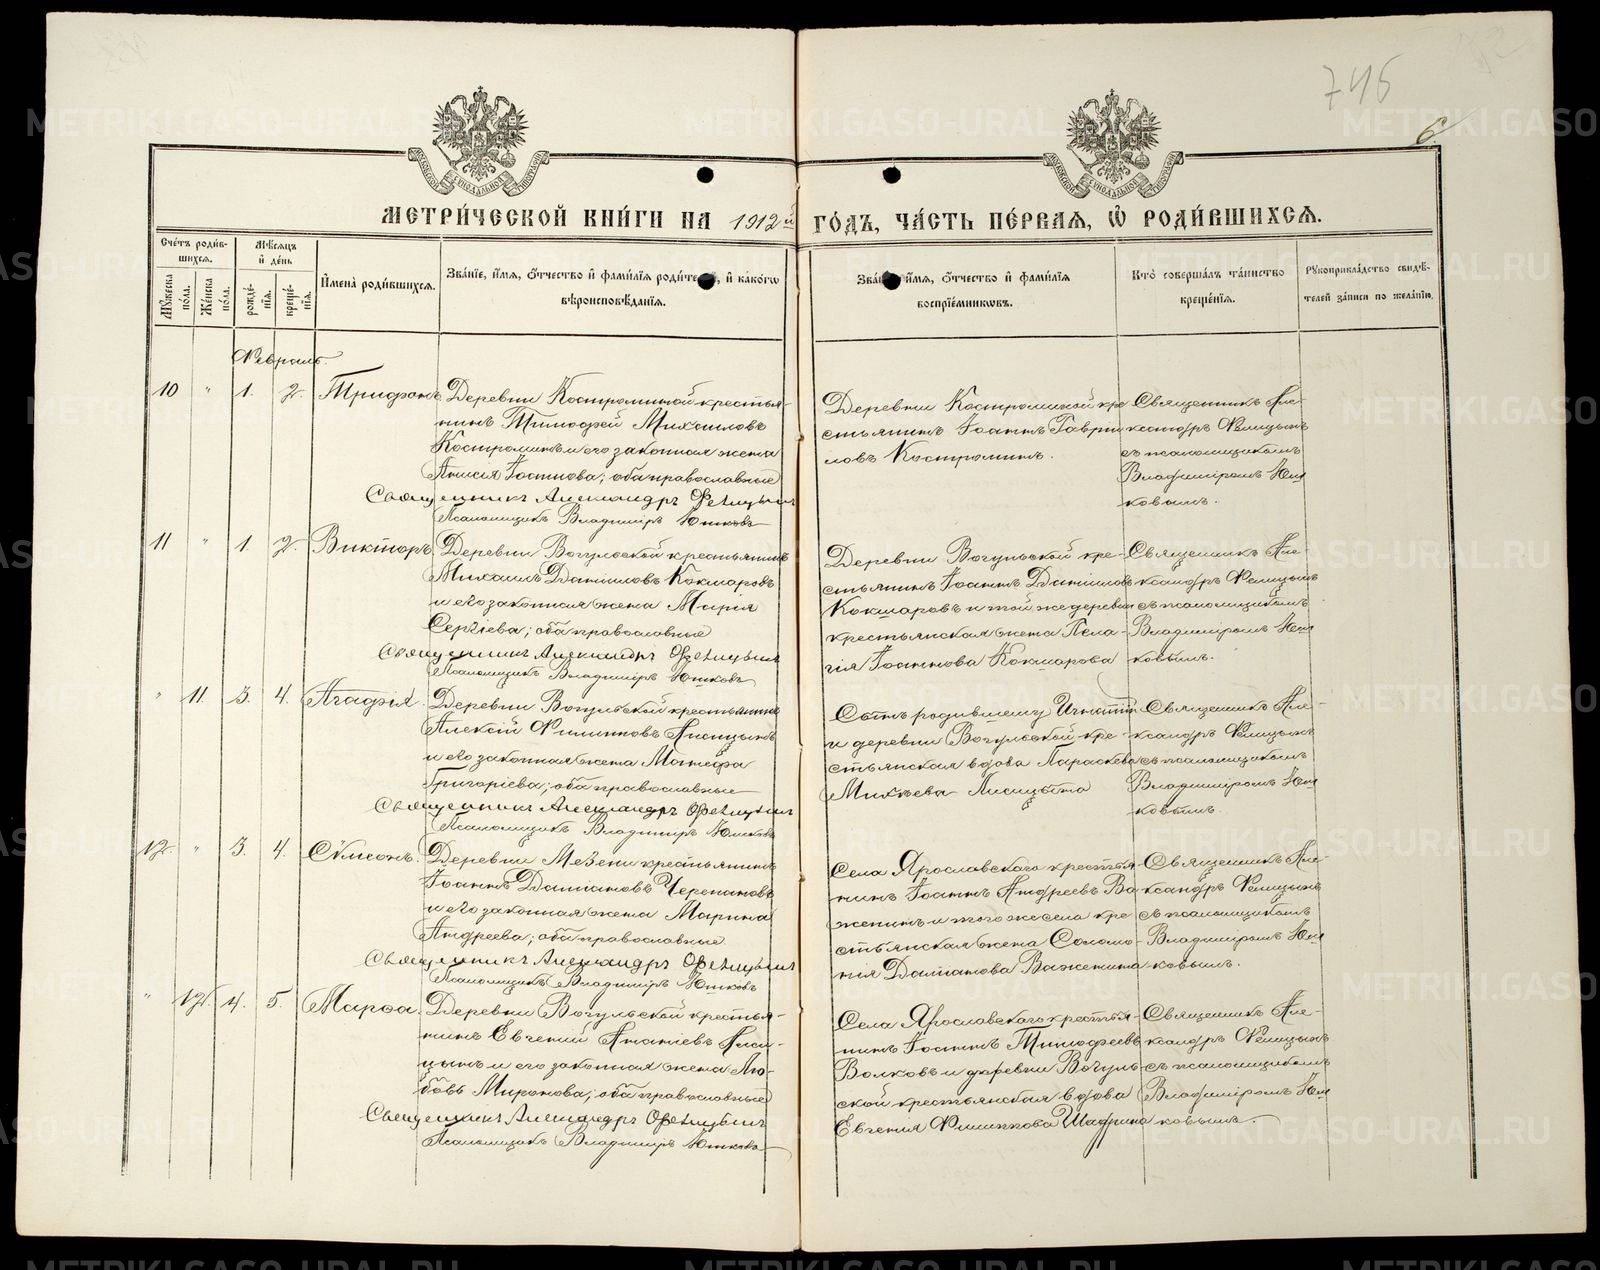 745
6.
МЕТРИ́ЧЕСКОЙ КНИ́ГИ НА 1912й ГО́ДЪ, ЧА́СТЬ ПЕ́РВАЯ, Ѡ҆ РОДИ́ВШИХСЯ.
Сче́тъ роди́в-
шихся.
Мѣ́сяцъ
и҆ де́нь
Мꙋ́жеска по́ла.
Же́нска по́ла.
рожде́-
нїя.
креще́-
нїя.
И҆мена̀ роди́вшихся.
Зва́нїе, и҆́мя, ѻ҆́тчество и҆ фами́лїя роди́те , и҆ како́гѡ
вѣроисповѣ́данїя.
Зва́ и҆́мя, ѻ҆́тчество и҆ фами́лїя
воспрїе́мникѡвъ.
Кто̀ соверша́лъ та́инство
креще́нїя.
Рꙋкоприкла́дство свидѣ́-
телей за́писи по жела́нїю.
Февраль.
10 " 1. 2. Трифонъ
Деревни Костроминой крестья-
нинъ Тимофей Михаиловъ
Костроминъ и его законная жена
Анисія Іоаннова; оба православные
Священникъ Александръ Фелицынъ
Псаломщикъ Владиміръ Юшковъ
Деревни Костроминой кре
стьянинъ Іоаннъ Гаврии
ловъ Костроминъ.
Священникъ Але-
ксандръ Фелицынъ
съ псаломщикомъ
Владиміромъ Юш
ковымъ.
11 " 1. 2. Викторъ
Деревни Вогульской крестьянинъ
Михаилъ Даніиловъ Кокшаровъ
и его законная жена Марія
Сергіева; оба православные
Священникъ Александръ Фелицынъ
Псаломщикъ Владиміръ Юшковъ
Деревни Вогульской кре-
стьянинъ Іоаннъ Даніиловъ
Кокшаровъ и той же деревни
крестьянская жена Пела-
гія Іоаннова Кокшарова
Священникъ Але-
ксандръ Фелицынъ
съ псаломщикомъ
Владиміромъ Юш
ковымъ.
" 11. 3. 4. Агафія.
Деревни Вогульской крестьянинъ
Алексій Филипповъ Лисицынъ
и его законная жена Матефа
Григоріева; оба православные
Священникъ Александръ Фелицынъ
Псаломщикъ Владиміръ Юшковъ
Сынъ родившему Игнатій
и деревни Вогульской кре-
стьянская вдова Параскева
Михѣева Лисицына
Священникъ Але-
ксандръ Фелицынъ
съ псаломщикомъ
Владиміромъ Юш
ковымъ.
12. " 3. 4. Сѵмеонъ.
Деревни Мезени крестьянинъ
Іоаннъ Даміановъ Черепановъ
и его законная жена Марина
Андреева; оба православные.
Священникъ Александръ Фелицынъ
Псаломщикъ Владиміръ Юшковъ
Села Ярославскаго крестья-
нинъ Іоаннъ Андреевъ Ва
женинъ и того же села кре
стьянская жена Соломо-
нія Даміанова Важенина
Священникъ Але-
ксандръ Фелицынъ
съ псаломщикомъ
Владиміромъ Юш
ковымъ.
" 12. 4. 5. Марѳа
Деревни Вогульской крестья-
нинъ Евгеній Ананіевъ Лиси-
цынъ и его законная жена Лю-
бовь Миронова; оба православные
Священникъ Александръ Фелицынъ
Псаломщикъ Владиміръ Юшковъ
Села Ярославскаго крестья-
нинъ Іоаннъ Тимофеевъ
Волковъ и деревни Вогуль
ской крестьянская вдова
Евгенія Филиппова Шафрина
Священникъ Але-
ксандръ Фелицынъ
съ псаломщикомъ
Владиміромъ Юш
ковымъ.
METRIKI.GASO-URAL.RU